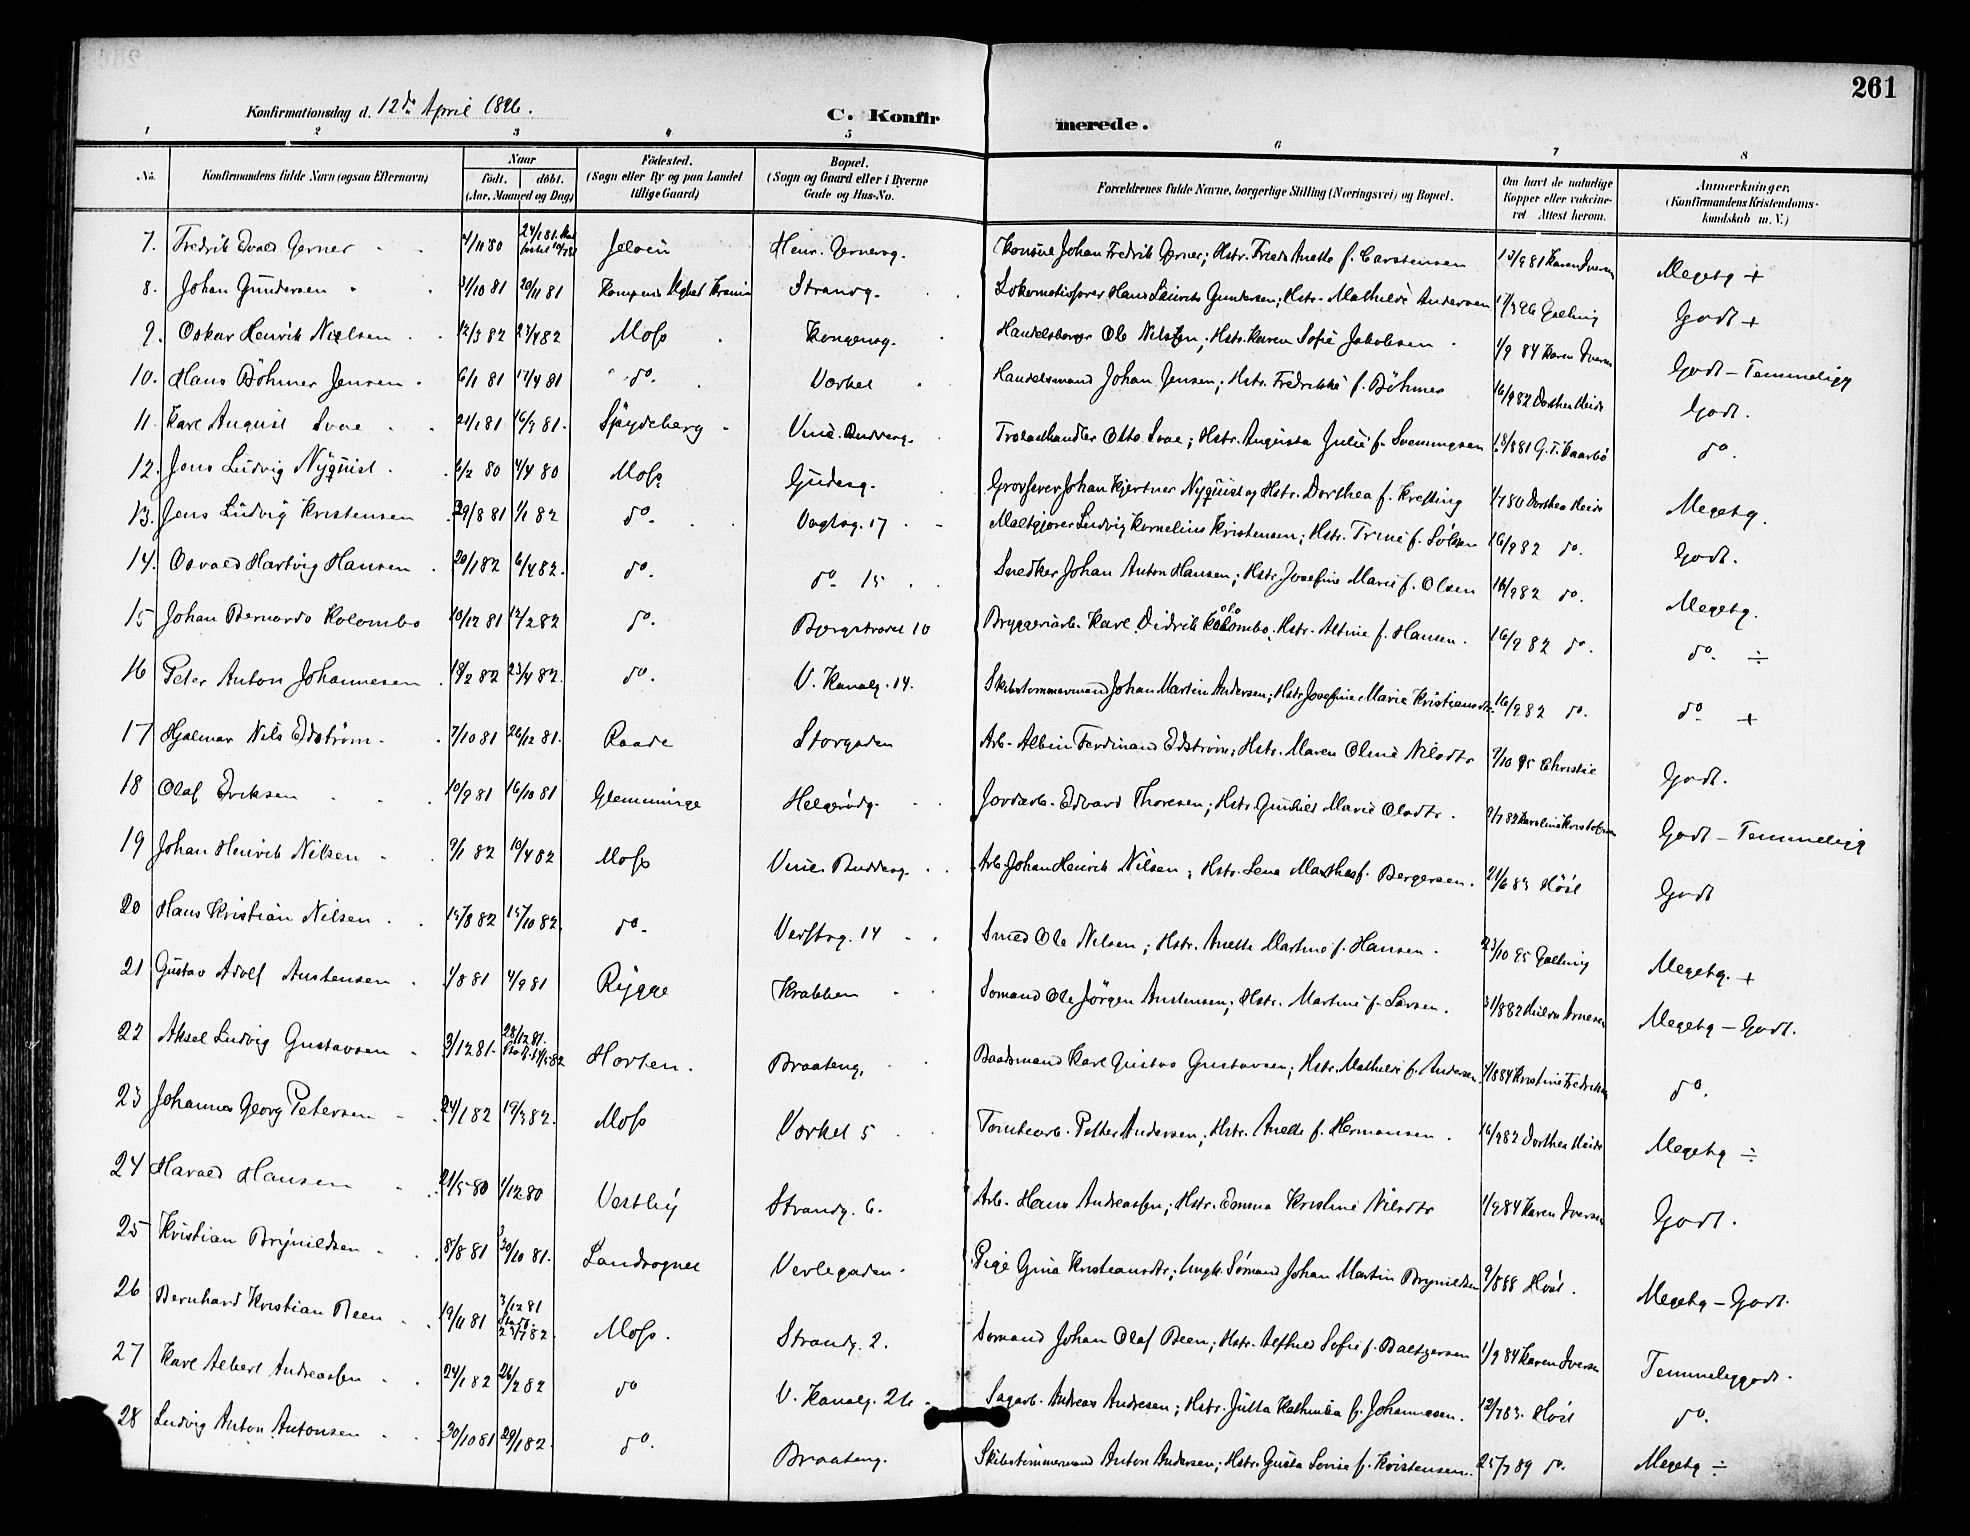 261
Konfirmationsdag d. 12te April 1896.
C. Konfirmerede.
1 2 3 4 5 6 7 8
No. Konfirmandens fulde Navn (ogsaa Efternavn) Naar födt. döbt. (Aar, Maaned og Dag) Födested. (Sogn eller By og paa Landet tillige Gaard) Bopæl. (Sogn og Gaard eller i Byerne Gade og Hus-No. Forældrenes fulde Navne, borgerlige Stilling (Næringsvei) og Bopæl. Om havt de naturlige Kopper eller vaccineret. Attest herom. Anmærkninger. (Konfirmandens Kristendomskundskab m. V.)
7. Fredrik Evald Gerner 4/11 80 24/1 81. Jelöen Henr. Gernersg. Konsul Johan Fredrik Gerner; Hstr. Anette f. Carstensen 13/9 81 Karen Iversen Megetg +
8. Johan Gundersen 31/10 81 20/11 81 Strandg. Lokomotivförer Hans Laurits Gundersen; Hstr. Mathilde Andersen 17/3 96 Galtung Godt +
9. Oskar Henrik Nielsen 12/3 82 23/4 82 Moss Kongensg. Handelsborger Ole Nilsen; Hstr. Karen Sofie Jakobsen 1/9 84 Karen Iversen Godt - Temmeligg
10. Hans Böhmer Jensen 6/1 81 17/4 81 do. Værket Handelsmand Johan Jensen; Hstr. Fredrikke f. Böhmer 16/9 82 Dorthea Heide Godt.
11. Karl August Svae 21/1 81 16/9 81. Spydeberg Vine. Buddeg. Trælasthandler Otto Svae; Hstr. Augusta Julie f. Svenningsen 18/8 81 G.T. Kaarbö do.
12. Jens Ludvig Nyquist 6/2 80 4/4 80 Moss Gudesg. Grosserer Johan Hjertner Nyquist og Hstr. Dorthea f. Krefting 1/7 80 Dorthea Heide Megetg.
13. Jens Ludvig Kristensen 29/8 81 1/1 82 do. Vogtsg. 17 Maltgjörer Ludvig Kornelius Kristensen; Hstr. Trine f. 16/9 82 do. Godt.
14. Osvald Hartvig Hansen 20/1 82 6/4 82. do. do. 15 Snedker Johan Anton Hansen; Hstr. Josefine Marie f. Olsen 16/9 82 do. Megetg.
15 Johan Bernardo Kolombo 10/12 81 12/2 82 do. Bergstrædet 10 Bryggeriarb. Karl Didrik Kolombo; Hstr. Altine f. Hansen. 16/9 82 do. do. ÷
16 Peter Anton Johannesen 18/2 82 23/4 82. do. V. Kanalg. 14. Skibstömmermand Johan Martin Andersen; Hstr. Josefine Marie Kristiansdtr. 16/9 82 do. do. +
17 Hjalmar Nils Edström 7/10 81 26/12 81. Raade Storgaden Arb. Albin Ferdinand Edström; Hstr. Maren Oline Nilsdtr 7/10 95 Christie Godt.
18 Olaf Eriksen 10/9 81 16/10 81 Glemminge Helgerödg. Jordarb. Edvard Thoresen; Hstr. Gunhild Marie Olsdtr. 9/7 82 Karoline Kristofersen Godt - Temmeligg
19 Johan Henrik Nilsen 9/1 82 10/4 82 Moss Vinc. Buddesg. Arb. Johan Henrik Nilsen; Hstr. Lena Mathea f. Bergersen. 21/6 83 Höst Godt
20 Hans Kristian Nilsen 15/8 82 15/10 82. do. Verftsg. 14 Smed Ole Nilsen; Hstr. Anette Martine f. Hansen. 23/10 95 Galtung Megetg. +
21 Gustav Adolf Austensen 1/8 81 4/9 81 Rygge Krabben Sömand Ole Jörgen Austensen; Hstr. Martine f. Larsen. 31/8 82 Arnesen Megetg - Godt.
22 Aksel Ludvig Gustavsen 3/12 81. 28/12 81. Horten. Braateng. Baadsmand Karl Gustav Gustavsen; Hstr. Mathilde f. Andersen 1/8 84 Kristine Fredriksen do.
23 Johannes Georg Petersen 24/1 82 19/3 82. Moss Værket 5 Tomtearb. Petter Andersen; Hstr. Anette f. Hermansen. 16/9 82 Dorthea Heide Megetg ÷
24 Harald Hansen 21/5 80 1/12 80 Vestby Strandg. 6. Arb. Hans Andreassen; Hstr. Emma Kristine Nilsdtr 1/9 84 Karen Iversen Godt.
25 Kristian Brynildsen 8/8 81 30/10 81. Landsognet Verlegaden Pige Gina Kristiansdtr; Ungk. Sömand Johan Martin Brynildsen 9/8 88 Höst. Megetg - Godt.
26 Bernhard Kristian Been 19/11 81 3/12 81 Stadf. 23/7 82. Moss. Strandg. 2. Sömand Johan Olaf Been; Hstr. Alfhild Sofie f. Baltzersen 1/9 84 Karen Iversen Temmeliggodt.
27 Karl Albert Andreassen 24/1 82 26/2 82 do V. Kanalg. 26 Sagarb. Andreas Andresen; Hstr. Julla Kathinka f. Johannesen. 12/7 83. Höst do.
28 Ludvig Anton Antonsen 30/10 81 29/1 82. do. Braateng. Skibstömmermand Anton Andersen; Hstr. Gusta Lovise f. Kristensen. 25/7 89 do. Megetg ÷